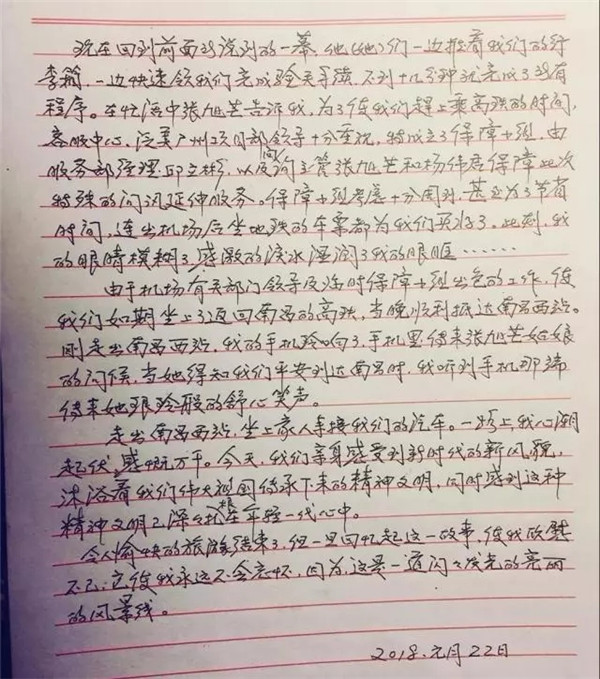 现在回到前面我说到的一幕，他(她)们一边推着我们的行
李箱，一边快速领我们完成登关手续，不到十几分钟就完成了所有
程序。在忙活中张旭芒告诉我，为了使我们赶上乘高铁的时间，
客服中心，汉莎广州项目部领导十分重视，特成立了保障小组，由
服务部经理邱立彬，以及问询主管张旭芒和杨纬度保障此次
特殊的问讯延伸服务。保障小组考虑十分周到，甚至为了节省
时间，连出机场后坐地铁的车票都为我们买好了。此刻，我
的眼睛模糊了，感激的泪水湿润了我的眼眶……
由于机场有关部门领导及临时保障小组出色的工作，使
我们如期坐上了返回南昌的高铁，当晚顺利抵达南昌西站。
刚走出南昌西站，我的手机铃响了，手机里传来张旭芒姑娘
的问候，当她得知我们平安到达南昌时，我听到手机那端
传来她银铃般的舒心笑声。
走出南昌西站，坐上家人来接我们的汽车。一路上我心潮
起伏，感慨万千。今天，我们亲身感受到新时代的新风貌，
沐浴着我们伟大祖国传承下来的精神文明，同时感到这种
精神文明已深深扎根在年轻一代心中。
令人愉快的旅游结束了，但一旦回忆起这一故事，使我欣慰
不已；它使我永远不会忘怀，因为，这是一道闪闪发光的亮丽
的风景线。
2018.元月22日